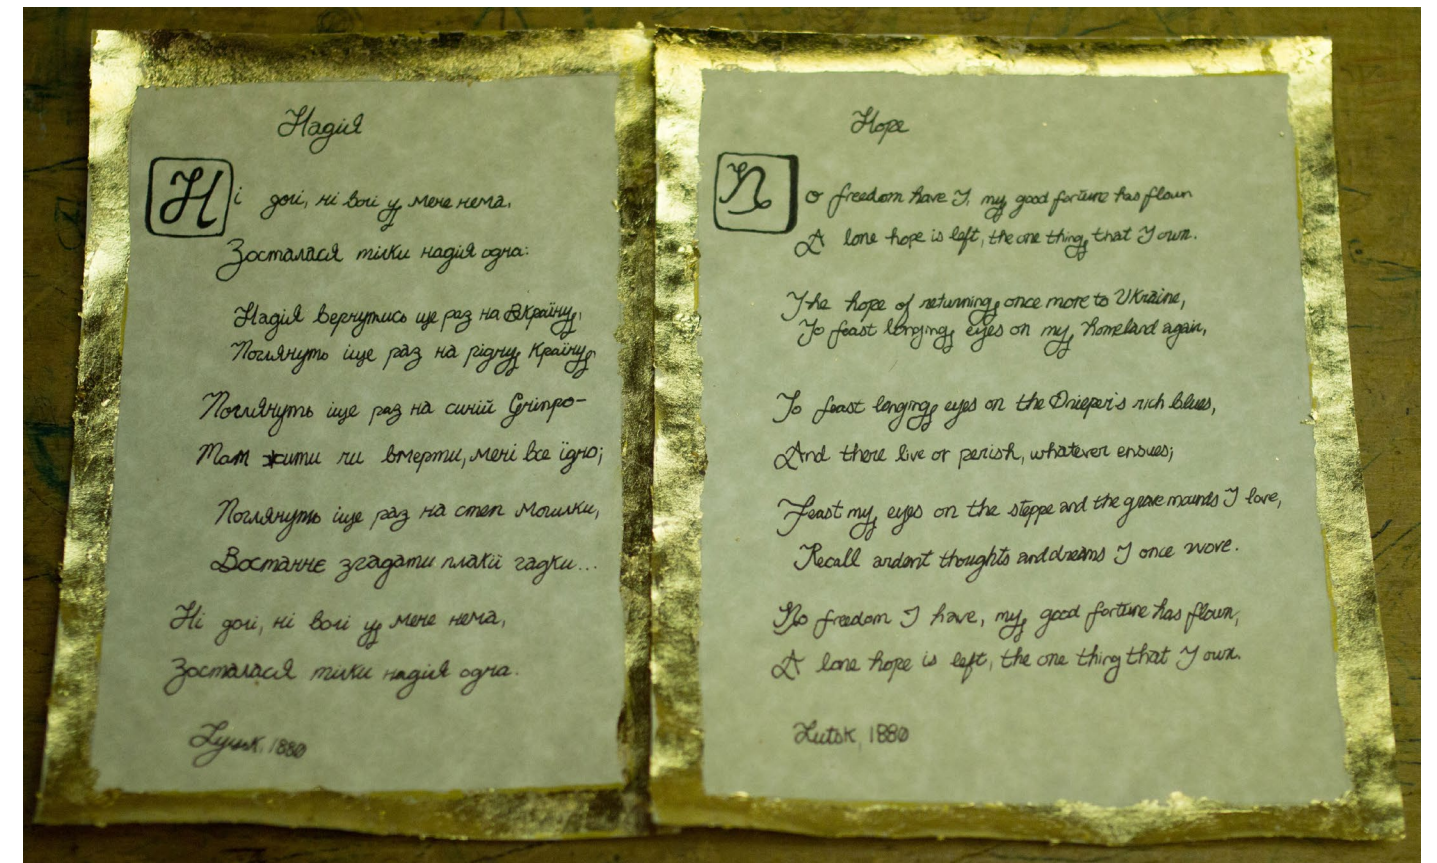 Надія
Ні долі, ні волі у мене нема,
Зосталася тілки надія одна:
Надія вернутись ще раз на Вкраїну,
Поглянуть іще раз на рідну країну,
Поглянуть іще раз на синій Дніпро–
Там жити чи вмерти, мені все їдно;
Поглянуть іще раз на степ могилки,
Востаннє згадати плакії гадки...
Ні долі, ні волі у мене нема,
Зосталася тілки надія одна.
Луцьк, 1880
Hope
No freedom have I, my good fortune has flown
A lone hope is left, the one thing, that I own.
The hope of returning, once more to Ukraine,
To feast longing, eyes on my, homeland again,
To feast longing, eyes on the Dnieper's rich blues,
And there live or perish, whatever ensues;
Feast my, eyes on the steppe and the grave mounds I love,
Recall ardent thoughts and dreams I once wove.
No freedom I have, my, good fortune has flown,
A lone hope is left, the one thing that I own.
Lutsk, 1880